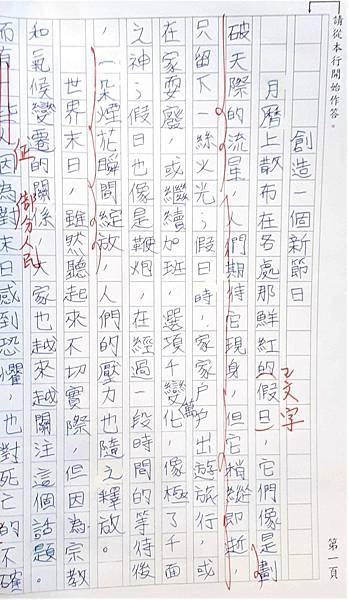 請從本行開始作答。
第一頁
創造一個新節日
月曆上散布在各處那鮮紅的假日，它們像是劃
文字
破天際的流星，人們期待它現身，但它稍縱即逝，
只留下一絲火光；假日時，家家戶戶出遊旅行，或
在家耍廢，或繼續加班，選項千變萬化，像極了千面
之神；假日也像是鞭炮，在經過一段時間的等待後
，一朵煙花瞬間綻放，人們的壓力也隨之釋放。
世界末日，雖然聽起來不切實際，但因為宗教
和氣候變遷的關係，大家也越來越關注這個話題。
部分人民
而有因為對末日感到恐懼，也對死亡的不確